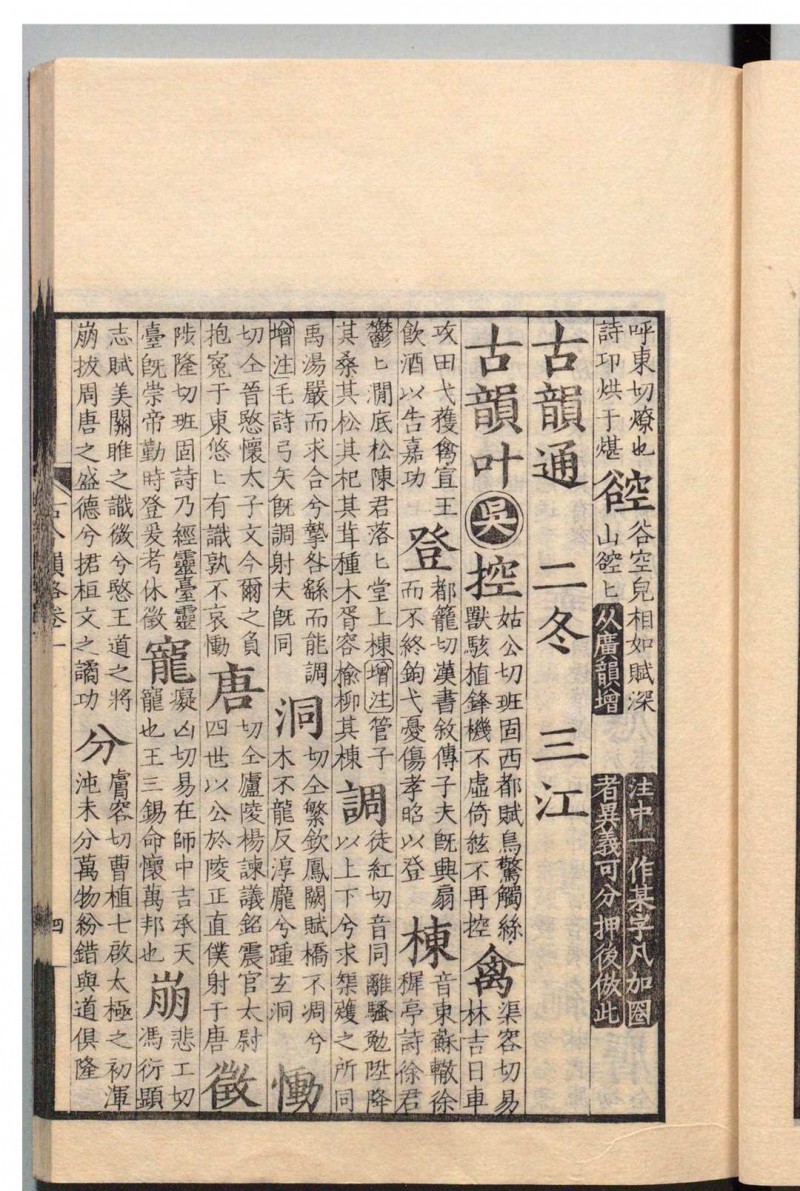 呼東切燎也
詩卬烘于煁
谾
谷空皃相如賦深
山谾〻
从廣韻增
注中一作某字凡加圈
者異義可分押後倣此
古韻通 二冬 三江
古韻叶 吳 控
姑公切班固西都賦鳥驚觸絲
獸駭植鋒機不虛倚絃不再控
禽
渠容切易
林吉日車
攻田弋獲禽宜王
飲酒以告嘉功
登
都籠切漢書敘傳子夫旣興扇
而不終鉤弋憂傷孝昭以登
棟
音東蘇轍徐
穉亭詩徐君
鬱〻澗底松陳君落〻堂上棟增注管子
其桑其松其杞其茸種木胥容榆柳其棟
調
徒紅切音同離騷勉陞降
以上下兮求榘矱之所同
禹湯嚴而求合兮摯咎繇而能調
增注毛詩弓矢旣調射夫旣同
洞
切仝繁欽鳳闕賦橋不凋兮
木不龍反淳厖兮踵玄洞
慟
切仝晉愍懷太子文今爾之負
抱冤于東悠〻有識孰不哀慟
唐
切仝廬陵楊諫議銘震官太尉
四世以公於陵正直僕射于唐
徵
陟隆切班固詩乃經靈臺靈
臺旣崇帝勤時登爰考休徵
寵
癡凶切易在師中吉承天
寵也王三錫命懷萬邦也
崩
悲工切
馮衍顯
志賦美關雎之識微兮愍王道之將
崩拔周唐之盛德兮捃桓文之譎功
分
膚容切曹植七啟太極之初渾
沌未分萬物紛錯與道俱隆
古今韻略卷一
四